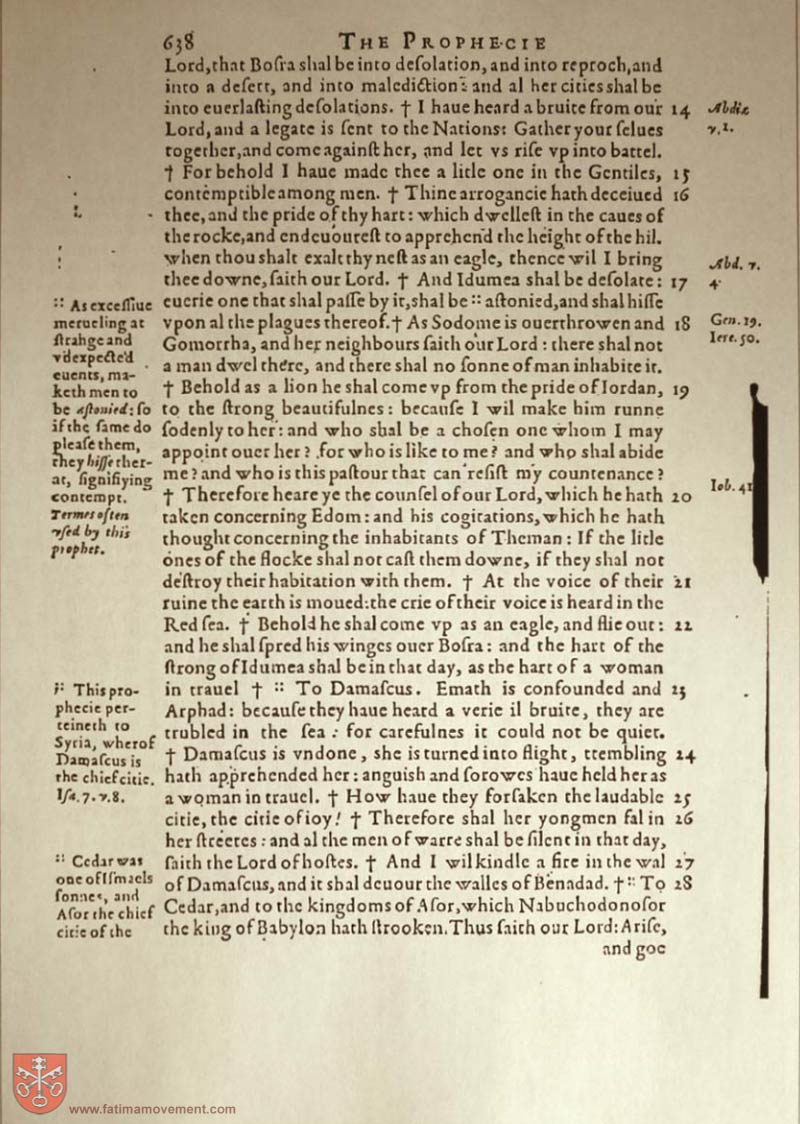 638 THE PROPHECIE
Lord, that Bosra shal be into desolation, and into reproch, and
into a desert, and into malediction: and al her cities shal be
into euerlasting desolations. † I haue heard a bruite from our 14
Lord, and a legate is sent to the Nations: Gather your selues
together, and come against her, and let vs rise vp into battel.
† For behold I haue made thee a litle one in the Gentiles, 15
contemptible among men. † Thine arrogancie hath deceiued 16
thee, and the pride of thy hart: which dwellest in the caues of
the rocke, and endeuourest to apprehend the height of the hil.
when thou shalt exalt thy nest as an eagle, thence wil I bring
thee downe, saith our Lord. † And Idumea shal be desolate: 17
euerie one that shal passe by it, shal be :: astonied, and shal hisse
vpon al the plagues thereof. † As Sodome is ouerthrowen and 18
Gomorrha, and her neighbours saith our Lord: there shal not
a man dwel there, and there shal no sonne of man inhabite it.
† Behold as a lion he shal come vp from the pride of Iordan, 19
to the strong beautifulnes: because I wil make him runne
sodenly to her: and who shal be a chosen one whom I may
appoint ouer her? for who is like to me? and who shal abide
me? and who is this pastour that can resist my countenance?
† Therefore heare ye the counsel of our Lord, which he hath 20
taken concerning Edom: and his cogitations, which he hath
thought concerning the inhabitants of Theman: If the litle
ones of the flocke shal not cast them downe, if they shal not
destroy their habitation with them. † At the voice of their 21
ruine the earth is moued: the crie of their voice is heard in the
Red sea. † Behold he shal come vp as an eagle, and flie out: 22
and he shal spred his winges ouer Bosra: and the hart of the
strong of Idumea shal be in that day, as the hart of a woman
in trauel † :: To Damascus. Emath is confounded and 23
Arphad: because they haue heard a verie il bruite, they are
trubled in the sea: for carefulnes it could not be quiet.
† Damascus is vndone, she is turned into flight, trembling 24
hath apprehended her: anguish and sorowes haue held her as
a woman in trauel. † How haue they forsaken the laudable 25
citie, the citie of ioy! † Therefore shal her yongmen fal in 26
her streetes: and al the men of warre shal be silent in that day,
saith the Lord of hostes. † And I wil kindle a fire in the wal 27
of Damascus, and it shal deuour the walles of Benadad. † :: To 28
Cedar, and to the kingdoms of Asor, which Nabuchodonosor
the king of Babylon hath strooken. Thus saith our Lord: Arise,
and goe
:: As excessiue
merueling at
strange and
vnexpected
euents, ma-
keth men to
be astonied: so
if the same do
please them,
they hisse ther-
at, signifiying
contempt.
Termes often
vsed by this
prophet.
:: This pro-
phecie per-
teineth to
Syria, wherof
Damascus is
the chief citie.
Isa. 7. v. 8.
:: Cedar was
one of Ismaels
sonnes, and
Asor the chief
citie of the
Abdiæ
v. 1.
Abd. v.
4.
Gen. 19.
Iere. 50.
Iob. 41
www.fatimamovement.com